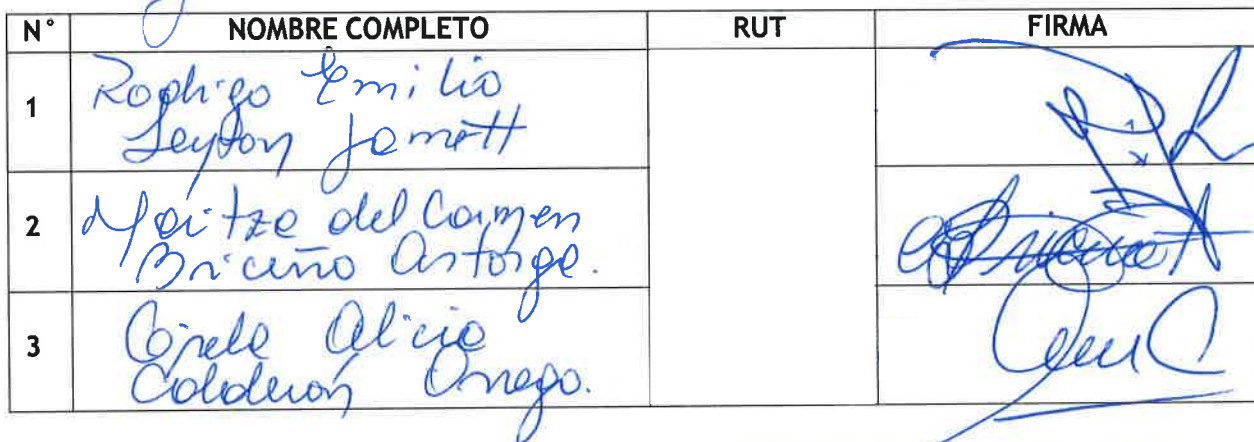 N° NOMBRE COMPLETO RUT FIRMA
1
Rodrigo Emilio
Leyton Jamett
2
Maritza del Carmen
Briceño Astorga.
3
Alicia
Calderón Orrego.